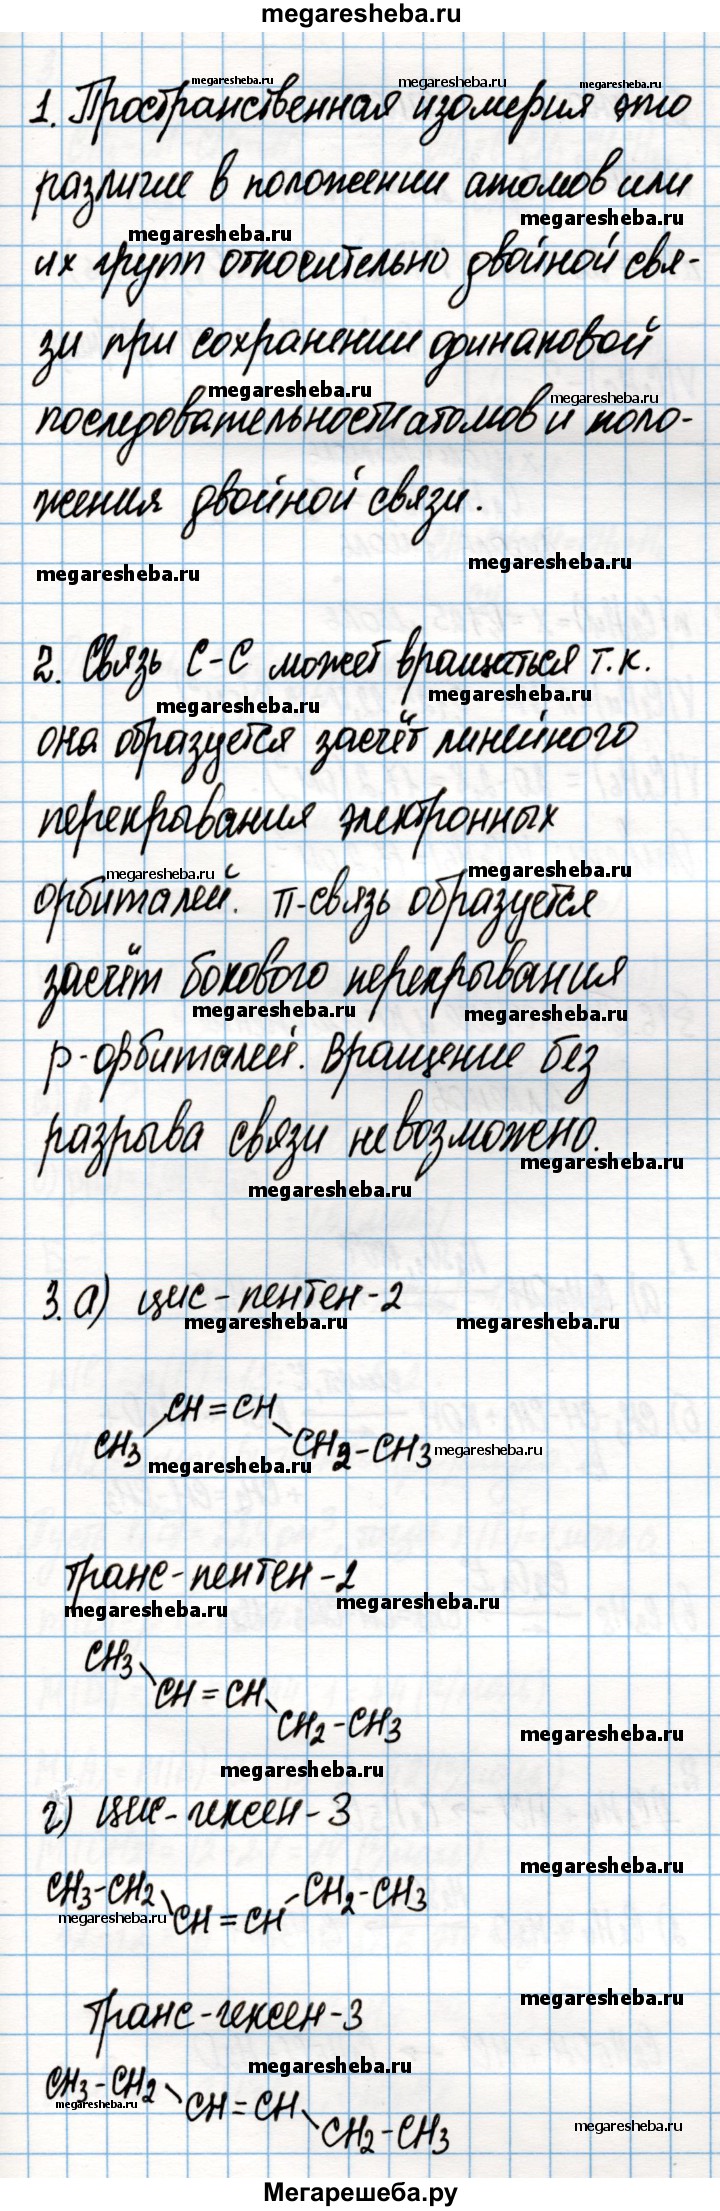 megaresheba.ru
1. Пространственная изомерия это
различие в положении атомов или
их групп относительно двойной свя-
зи при сохранении одинаковой
последовательности атомов и поло-
жения двойной связи.
2. Связь С-С может вращаться т.к.
она образуется засчёт линейного
перекрывания электронных
орбиталей. π-связь образуется
засчёт бокового перекрывания
р-орбиталей. Вращение без
разрыва связи невозможно.
3. а) цис-пентен-2
CH=CH
CH3 CH2-CH3
Транс-пентен-2
CH3
CH=CH
CH2-CH3
г) Цис-гексен-3
CH3-CH2 CH2-CH3
CH=CH
Транс-гексен-3
CH3-CH2
CH=CH
CH2-CH3
Мегарешеба.ру